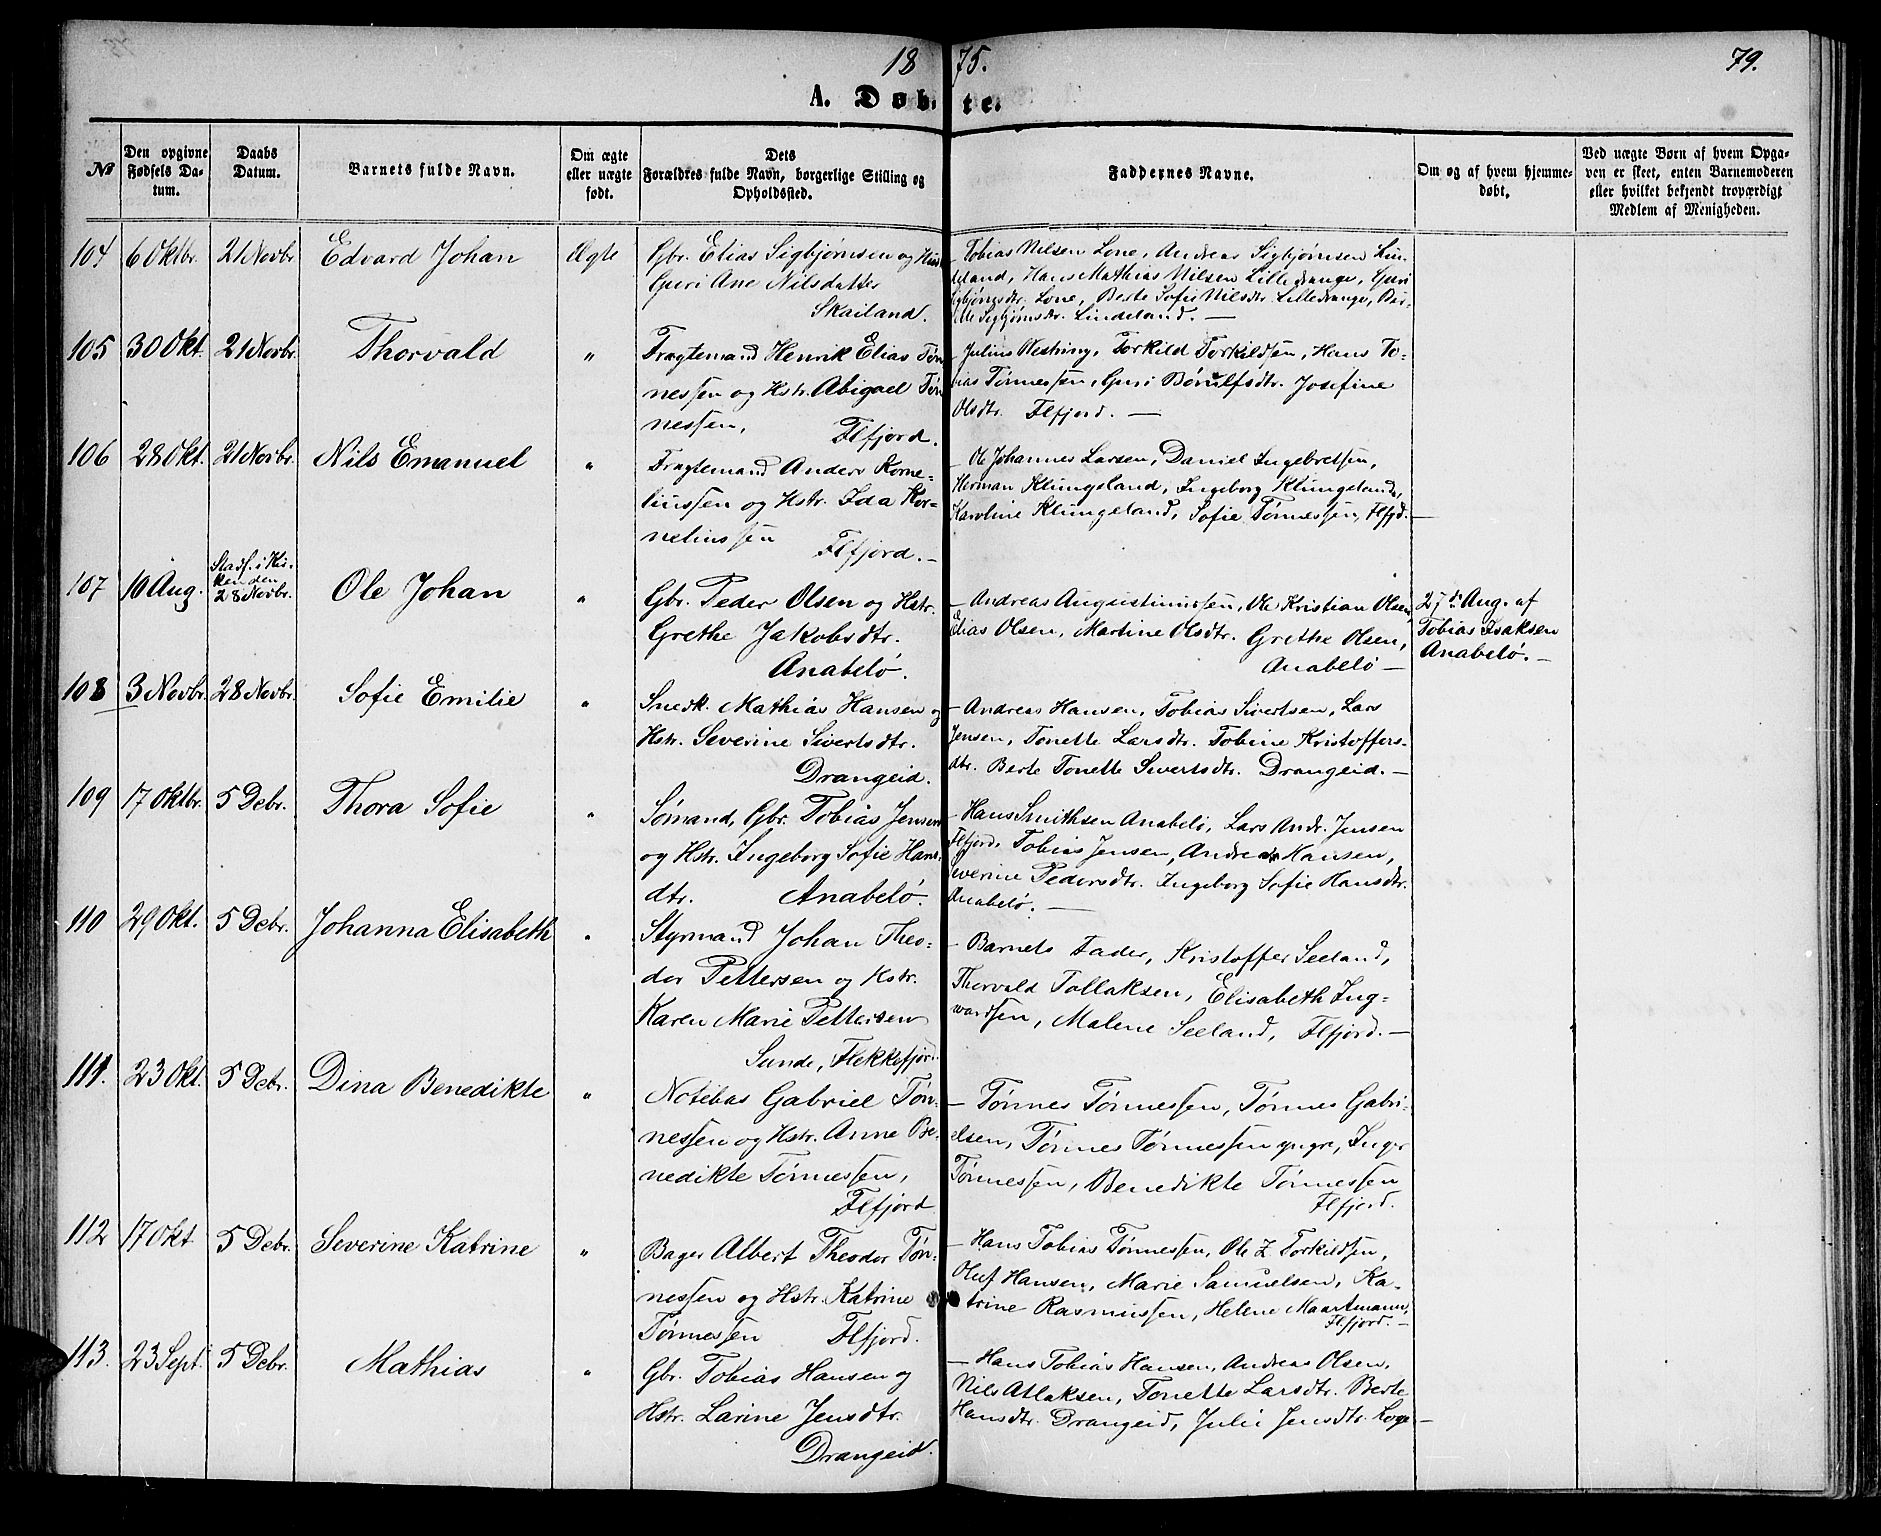 18 75. 79.
A. Døbte.
№
Den opgivne Fødsels Datum.
Daabs Datum.
Barnets fulde Navn.
Om ægte eller uægte født.
Dets Forældres fulde Navn, borgerlige Stilling og Opholdssted.
Faddernes Navne.
Om og af hvem hjemmedøbt.
Ved uægte Børn af hvem Opgaven er skeet, enten Barnemoderen eller hvilket bekjendt troværdigt Medlem af Menigheden.
104 6 Oktbr. 21 Novbr Edvard Johan Ægte
Gbr. Elias Sigbjørnsen og
Guri Ane Nilsdatter
Skailand.
Tobias Nilsen Lone, Andreas Sigbjørnsen Lin-
deland, Hans Mathias Nilsen Lilledrange, Guri
Sigbjørnsdtr. Lone, Berte Sofie Nilsdtr. Lilledrange, Ber-
Sigbjørnsdtr. Lindeland. —
105 30 Okt. 21 Novbr. Thorvald "
Fragtemand Henrik Elias Tøn-
nessen og Hstr. Abigael Tøn-
nessen, Flfjord.
— Julius Westring, Torkild Torkildsen, Hans To-
bias Tønnessen, Guri Børulfsdtr. Josefine
Olsdtr. Flfjord. —
106 28 Okt. 21 Novbr. Nils Emanuel "
Fragtemand Anders Korne-
liussen og Hstr. Ida Kor-
neliussen Flfjord. —
— Ole Johannes Larsen, Daniel Ingebretsen,
Herman Klungeland, Ingeborg Klungeland,
Karoline Klungeland, Sofie Tønnessen, Flfjd. —
107 10 Aug. Stadf. i Kir-
ken den
28 Novbr. Ole Johan "
Gbr. Peder Olsen og Hstr.
Grethe Jakobsdtr.
Anabelø.
— Andreas Augustinussen, Ole Kristian Olsen,
Elias Olsen, Martine Olsdtr. Grethe Olsen,
Anabelø —
27de Aug. af
Tobias Isaksen
Anabelø. —
108 3 Novbr. 28 Novbr. Sofie Emilie "
Snedk. Mathias Hansen og
Hstr. Severine Sivertsdtr.
Drangeid.
— Andreas Hansen, Tobias Sivertsen, Lars
Jensen, Tonette Larsdtr. Tobine Kristoffers-
dtr. Berte Tonette Sivertsdtr. Drangeid. —
109 17 Oktbr. 5 Debr. Thora Sofie "
Sømand, Gbr. Tobias Jensen
og Hstr. Ingeborg Sofie Hans-
dtr. Anabelø.
— Hans Smithsen Anabelø, Lars Andr. Jensen
Flfjord, Tobias Jensen, Andreas Hansen,
Severine Pedersdtr. Ingeborg Sofie Hansdtr.
Anabelø. —
110 29 Okt. 5 Debr. Johanna Elisabeth "
Styrmand Johan Theo-
dor Pettersen og Hstr.
Karen Marie Pettersen
Sunde, Flekkefjord.
— Barnets Fader, Kristoffer Seeland,
Thorvald Tollaksen, Elisabeth Ing-
wardsen, Malene Seeland, Flfjord. —
111. 23 Okt. 5 Debr. Dina Benedikte "
Notebas Gabriel Tøn-
nessen og Hstr. Anne Be-
nedikte Tønnessen,
Flfjord
— Tønnes Tønnessen, Tønnes Gabri-
elsen, Tønnes Tønnessen yngre, Inger
Tønnessen, Benedikte Tønnessen
Flfjord.
112 17 Okt 5 Debr. Severine Katrine "
Bager Albert Theodor Tøn-
nessen og Hstr. Katrine
Tønnessen Flfjord.
— Hans Tobias Tønnessen, Ole Z Torkildsen,
Oluf Hansen, Marie Samuelsen, Ka-
trine Rasmussen, Helene Maartmann,
Flfjord. —
113. 23 Sept. 5 Debr. Mathias "
Gbr. Tobias Hansen og
Hstr. Larine Jensdtr.
Drangeid.
— Hans Tobias Hansen, Andreas Olsen,
Nils Atlaksen, Tonette Larsdtr. Berte
Hansdtr. Drangeid, Julie Jensdtr. Loge —